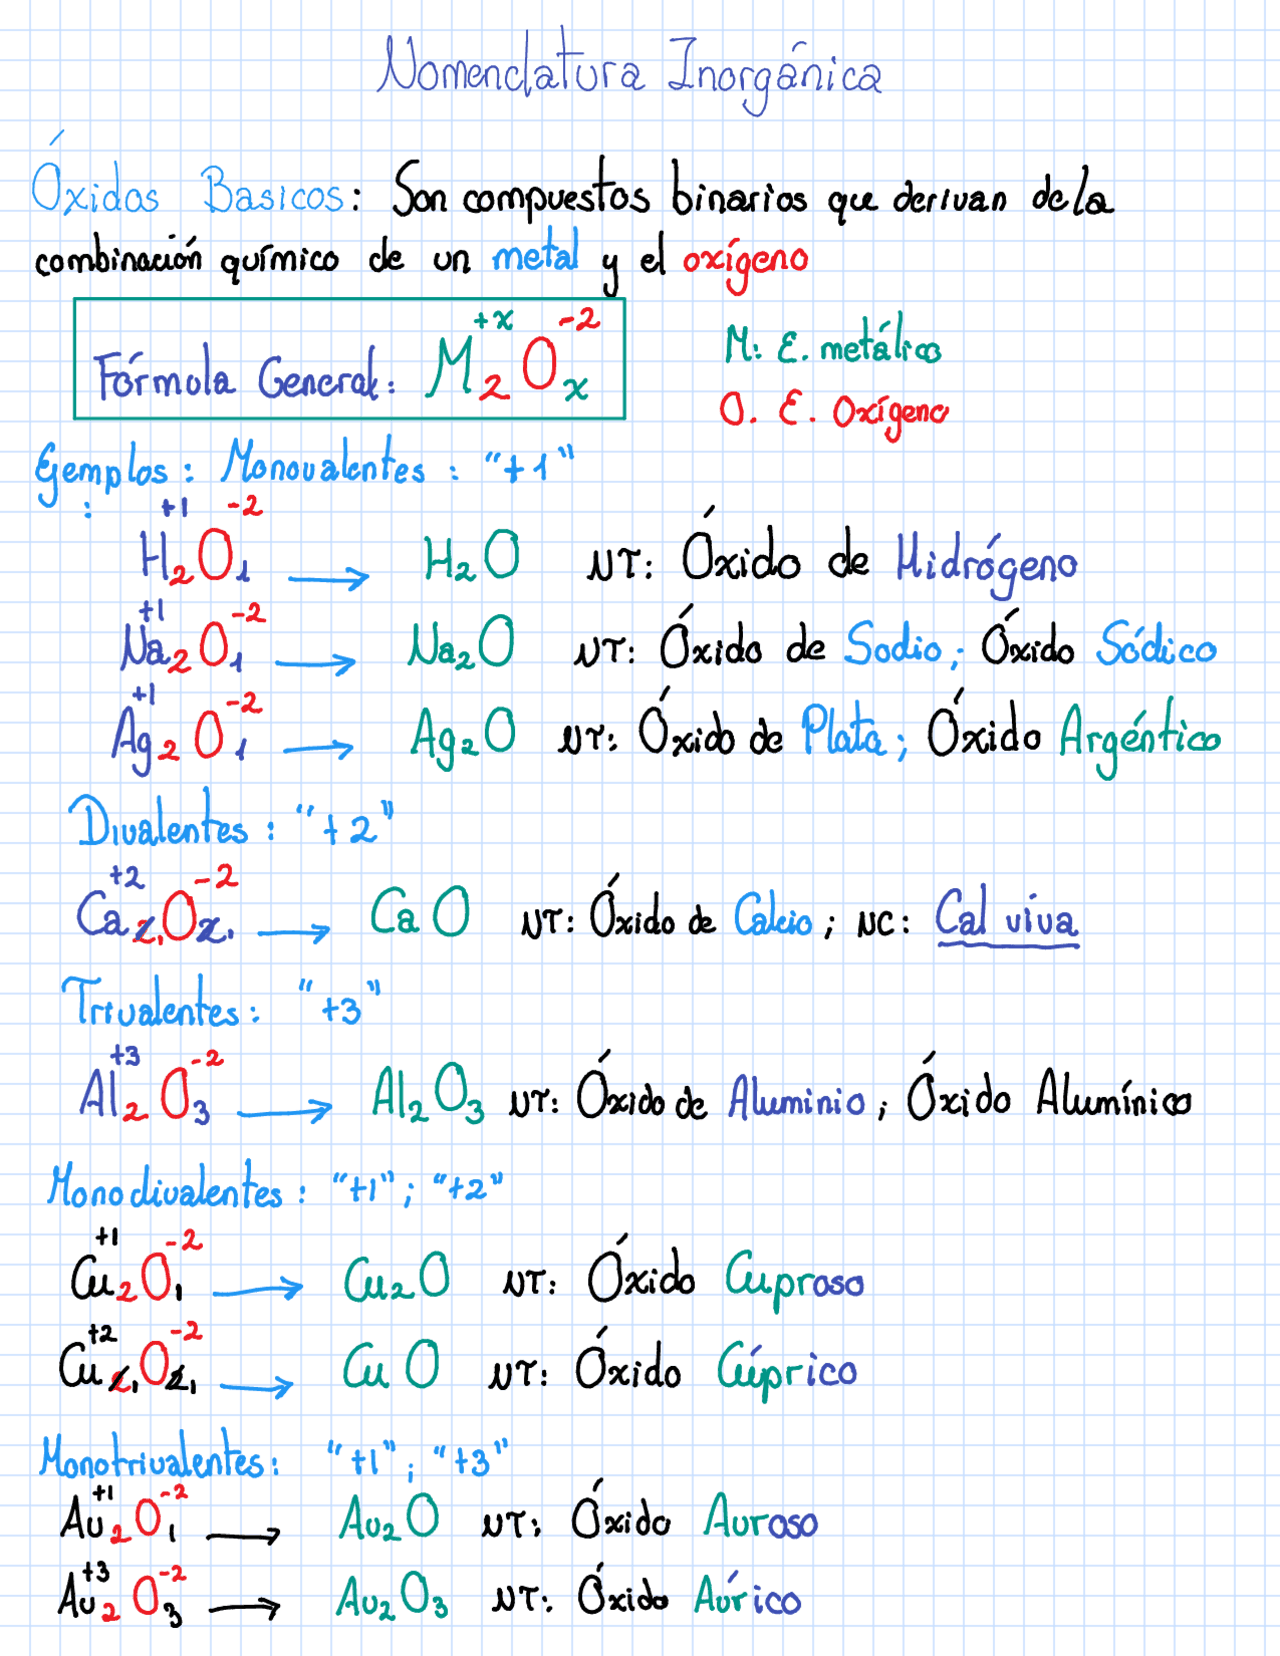 Nomenclatura Inorgánica
Óxidos Basicos: Son compuestos binarios que derivan de la
combinación químico de un metal y el oxígeno
Fórmula General: M₂⁺ˣOₓ⁻²
M: E. metálico
O. E. Oxígeno
Ejemplos: Monovalentes: "+1"
:
H₂⁺¹O₁⁻² → H₂O NT: Óxido de Hidrógeno
Na₂⁺¹O₁⁻² → Na₂O NT: Óxido de Sodio; Óxido Sódico
Ag₂⁺¹O₁⁻² → Ag₂O NT: Óxido de Plata; Óxido Argéntico
Divalentes: "+2"
Ca₂₁⁺²O₂₁⁻² → CaO NT: Óxido de Calcio; NC: Cal viva
Trivalentes: "+3"
Al₂⁺³O₃⁻² → Al₂O₃ NT: Óxido de Aluminio; Óxido Alumínico
Monodivalentes: "+1"; "+2"
Cu₂⁺¹O₁⁻² → Cu₂O NT: Óxido Cuproso
Cu₂₁⁺²O₂₁⁻² → CuO NT: Óxido Cúprico
Monotrivalentes: "+1"; "+3"
Au₂⁺¹O₁⁻² → Au₂O NT: Óxido Auroso
Au₂⁺³O₃⁻² → Au₂O₃ NT: Óxido Aúrico